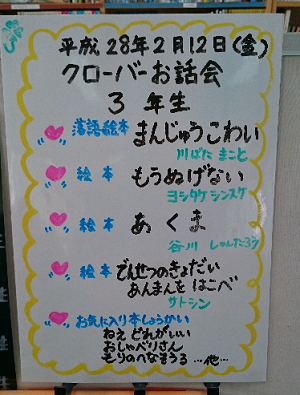 平成28年2月12日(金)
クローバーお話会
3年生
落語絵本 まんじゅうこわい
川ばた まこと
絵本 もうぬげない
ヨシタケシンスケ
絵本 あくま
谷川 しゅんたろう
絵本 でんせつのきょだい
あんまんを はこべ
サトシン
お気に入り本しょうかい
ねえ どれがいい
おしゃべりさん
もりのへなそうる …他…